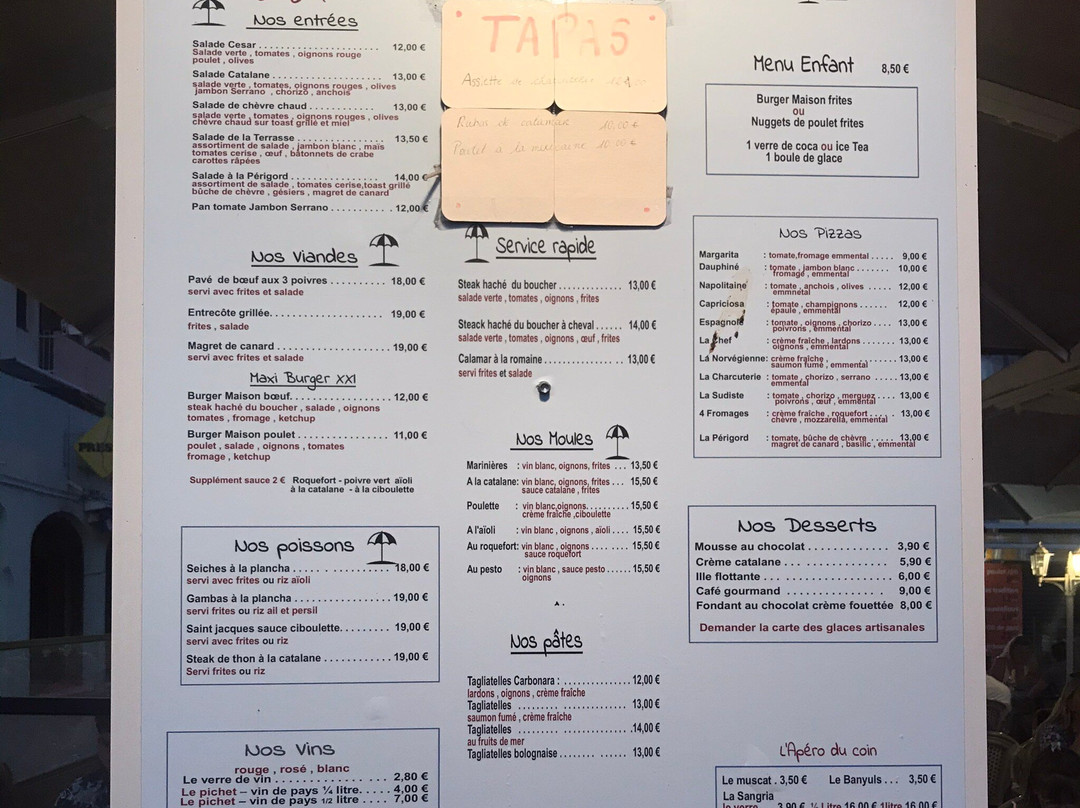 Nos entrées
Salade Cesar . . . . . . . . . . . . . . . . . . . . . 12,00 €
Salade verte , tomates , oignons rouge
poulet , olives
Salade Catalane . . . . . . . . . . . . . . . . . . . 13,00 €
salade verte , tomates, oignons rouges , olives
jambon Serrano , chorizo , anchois
Salade de chèvre chaud . . . . . . . . . . . 13,00 €
salade verte , tomates , oignons rouges , olives
chèvre chaud sur toast grillé et miel
Salade de la Terrasse . . . . . . . . . . . . . . 13,50 €
assortiment de salade , jambon blanc , maïs
tomates cerise , œuf , bâtonnets de crabe
carottes râpées
Salade à la Périgord . . . . . . . . . . . . . . . 14,00 €
assortiment de salade , tomates cerise,toast grillé
bûche de chèvre , gésiers , magret de canard
Pan tomate Jambon Serrano . . . . . . . . . . 12,00 €
Nos Viandes
Pavé de bœuf aux 3 poivres . . . . . . . . . . 18,00 €
servi avec frites et salade
Entrecôte grillée. . . . . . . . . . . . . . . . . . . 19,00 €
frites , salade
Magret de canard . . . . . . . . . . . . . . . . . . 19,00 €
servi avec frites et salade
Maxi Burger XXl
Burger Maison bœuf. . . . . . . . . . . . . . . . 12,00 €
steak haché du boucher , salade , oignons
tomates , fromage , ketchup
Burger Maison poulet . . . . . . . . . . . . . . . 11,00 €
poulet , salade , oignons , tomates
fromage , ketchup
Supplément sauce 2 € Roquefort - poivre vert aïoli
à la catalane - à la ciboulette
Nos poissons
Seiches à la plancha . . . . . . . . . . . . . . . . 18,00 €
servi avec frites ou riz aïoli
Gambas à la plancha . . . . . . . . . . . . . . . . 19,00 €
servi frites ou riz ail et persil
Saint jacques sauce ciboulette. . . . . . . . . 19,00 €
servi avec frites ou riz
Steak de thon à la catalane . . . . . . . . . . . . 19,00 €
Servi frites ou riz
Nos Vins
rouge , rosé , blanc
Le verre de vin . . . . . . . . . . . . . . . . . 2,80 €
Le pichet – vin de pays ¼ litre. . . . . 4,00 €
Le pichet – vin de pays 1/2 litre . . . . 7,00 €
TAPAS
Assiette de
10,00 €
10,00 €
Service rapide
Steak haché du boucher . . . . . . . . . . . . 13,00 €
salade verte , tomates , oignons , frites
Steack haché du boucher à cheval . . . . . . 14,00 €
salade verte , tomates , oignons , œuf , frites
Calamar à la romaine . . . . . . . . . . . . . . . . 13,00 €
servi frites et salade
Nos Moules
Marinières : vin blanc, oignons, frites . . . 13,50 €
A la catalane: vin blanc, oignons, frites . . . 15,50 €
sauce catalane , frites
Poulette : vin blanc,oignons. . . . . . . . . 15,50 €
crème fraîche ,ciboulette
A l'aïoli : vin blanc , oignons , aïoli . . . . 15,50 €
Au roquefort: vin blanc , oignons . . . . . . . . 15,50 €
sauce roquefort
Au pesto : vin blanc , sauce pesto . . . . . . 15,50 €
oignons
Nos pâtes
Tagliatelles Carbonara : . . . . . . . . . . . . . . 12,00 €
lardons , oignons , crème fraîche
Tagliatelles . . . . . . . . . . . . . . . . . . . . . 13,00 €
saumon fumé , crème fraîche
Tagliatelles . . . . . . . . . . . . . . . . . . . . . .14,00 €
au fruits de mer
Tagliatelles bolognaise . . . . . . . . . . . . . 13,00 €
Menu Enfant 8,50 €
Burger Maison frites
ou
Nuggets de poulet frites
1 verre de coca ou ice Tea
1 boule de glace
Nos Pizzas
Margarita : tomate,fromage emmental . . . . . 9,00 €
Dauphiné : tomate , jambon blanc . . . . . . . 10,00 €
fromage , emmental
Napolitaine : tomate , anchois , olives . . . . . 12,00 €
emmnétal
Capriciosa : tomate , champignons . . . . . . 12,00 €
épaule , emmental
Espagnole : tomate , oignons , chorizo . . . . 13,00 €
poivrons , emmental
La Chef : crème fraîche , lardons . . . . . . 13,00 €
oignons , emmental
La Norvégienne: crème fraîche , . . . . . . . . . . . 13,00 €
saumon fumé , emmental
La Charcuterie : tomate , chorizo , serrano . . . . . 13,00 €
emmental
La Sudiste : tomate , chorizo , merguez . . . . 13,00 €
poivrons , œuf , emmental
4 Fromages : crème fraîche , roquefort . . . . . 13,00 €
chèvre , mozzarella, emmental
La Périgord : tomate, bûche de chèvre . . . . . 13,00 €
magret de canard , basilic , emmental
Nos Desserts
Mousse au chocolat . . . . . . . . . . . . 3,90 €
Crème catalane . . . . . . . . . . . . . . . 5,90 €
Ille flottante . . . . . . . . . . . . . . . . . . 6,00 €
Café gourmand . . . . . . . . . . . . . . 9,00 €
Fondant au chocolat crème fouettée 8,00 €
Demander la carte des glaces artisanales
L'Apéro du coin
Le muscat . 3,50 € Le Banyuls . . . 3,50 €
La Sangria
le verre 3,90 € ½ Litre 16,00 €